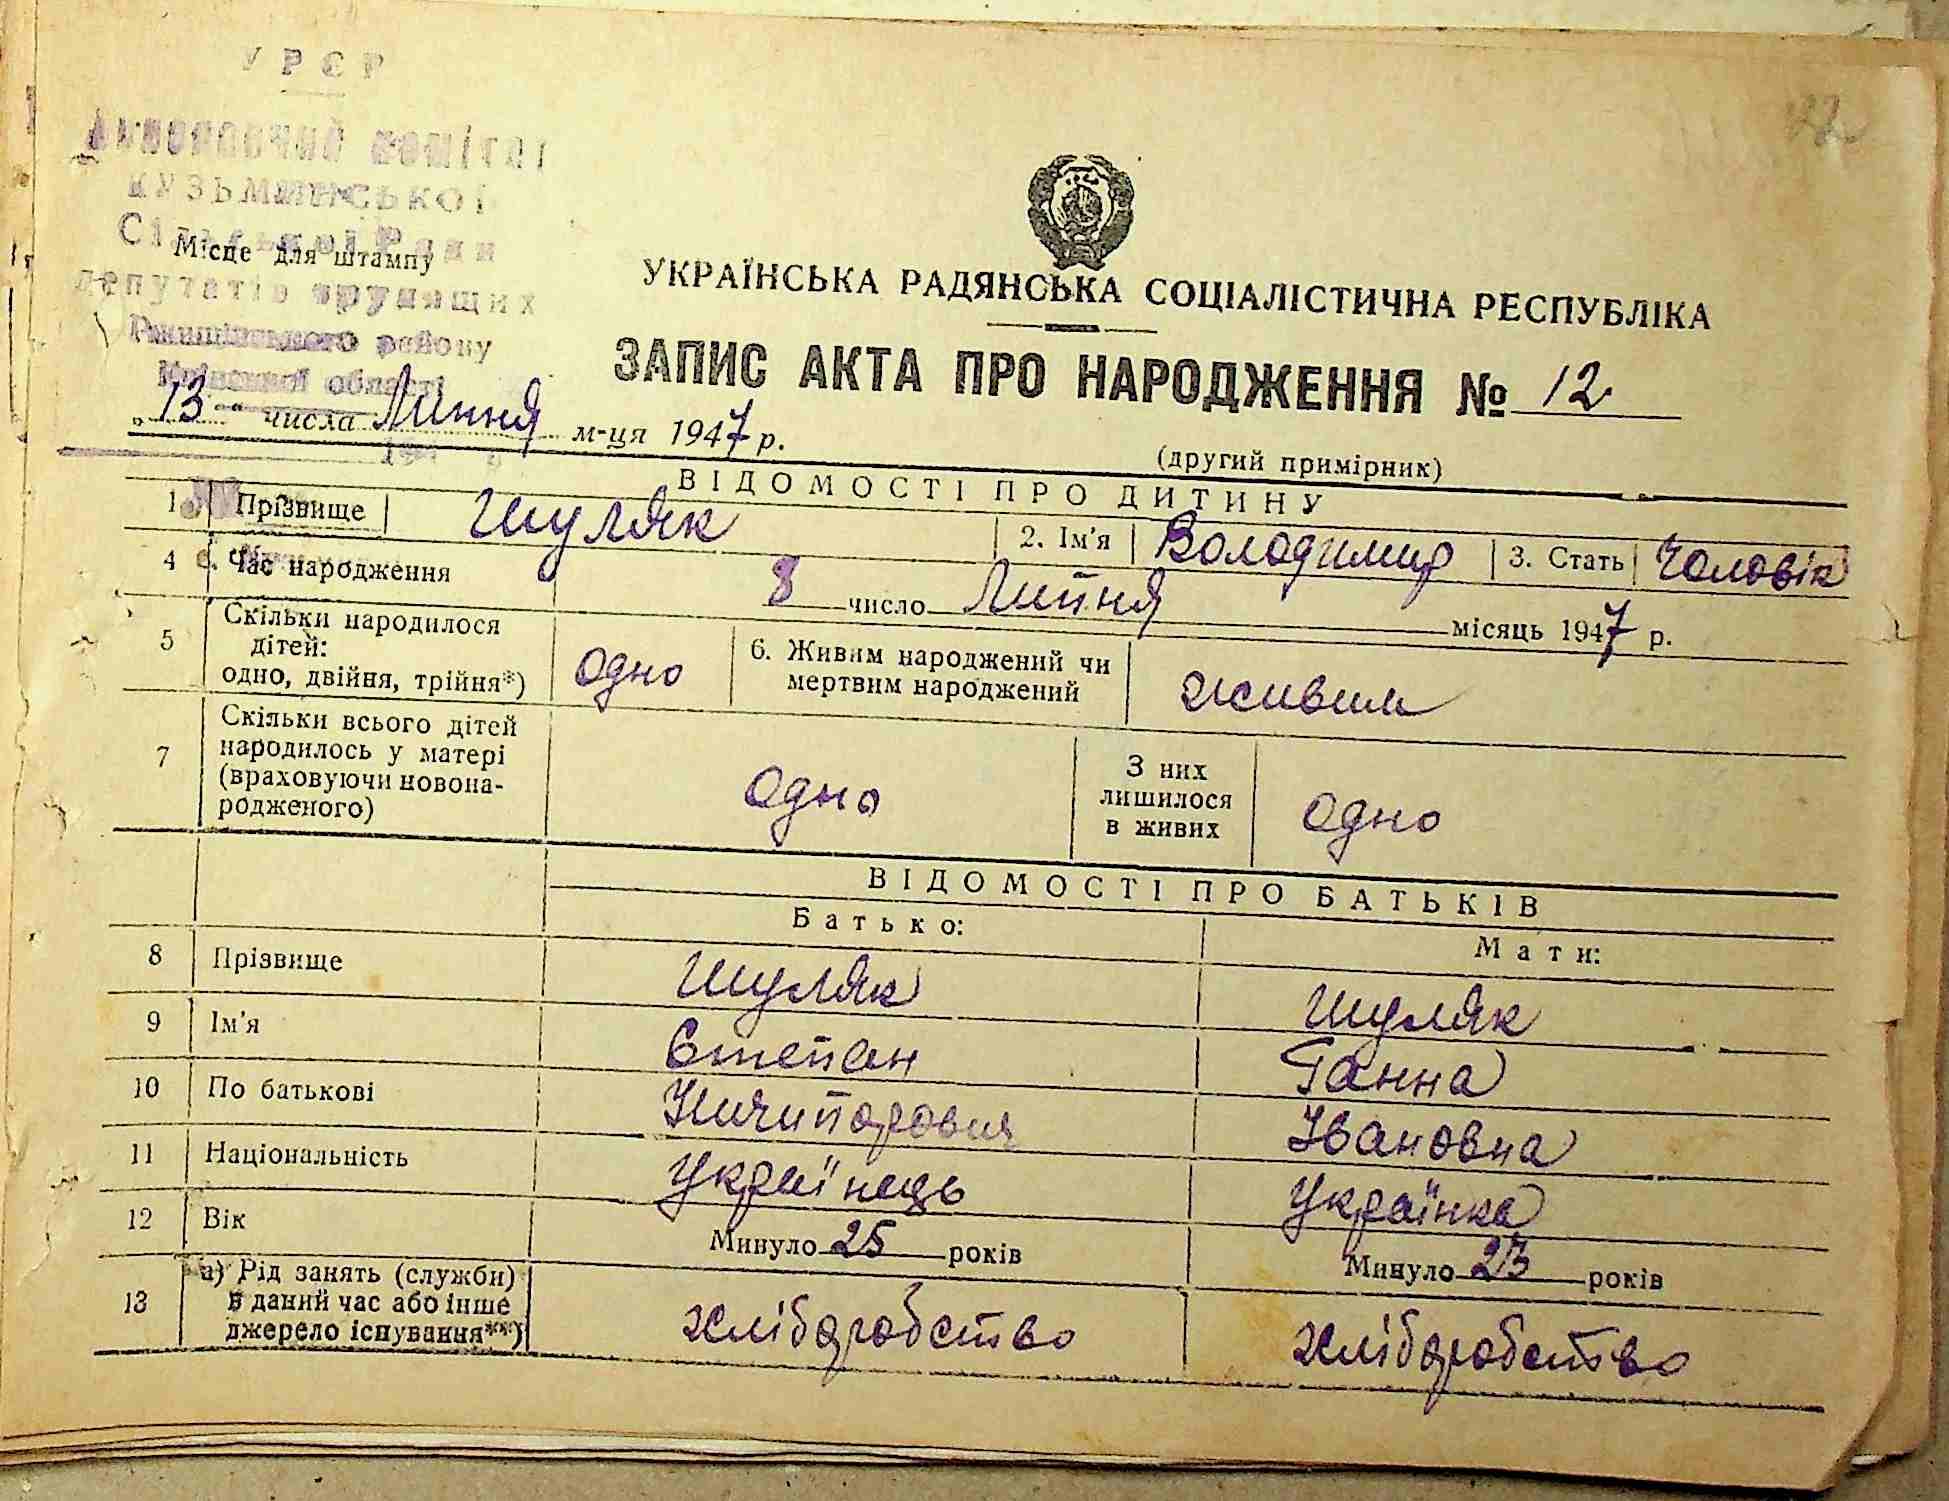 УРЄР
комітет
КУЗЬМИНСЬКОЇ
Сільської Ради
Місце для штампу
депутатів трудящих
району
області
„13“ числа Липня м-ця 1947 р.
22
УКРАЇНСЬКА РАДЯНСЬКА СОЦІАЛІСТИЧНА РЕСПУБЛІКА
ЗАПИС АКТА ПРО НАРОДЖЕННЯ № 12
(другий примірник)
ВІДОМОСТІ ПРО ДИТИНУ
1 Прізвище Шуляк 2. Ім'я Володимир 3. Стать Чоловік
4 Час народження 8 число Липня місяць 1947 р.
5 Скільки народилося дітей: одно, двійня, трійня*) одно 6. Живим народжений чи мертвим народжений живим
7 Скільки всього дітей народилось у матері (враховуючи новонародженого) одно З них лишилося в живих одно
ВІДОМОСТІ ПРО БАТЬКІВ
Батько: Мати:
8 Прізвище Шуляк Шуляк
9 Ім'я Степан Ганна
10 По батькові Ничипорович Івановна
11 Національність Українець Українка
12 Вік Минуло 25 років Минуло 23 років
13 а) Рід занять (служби) в даний час або інше джерело існування**) хліборобство хліборобство